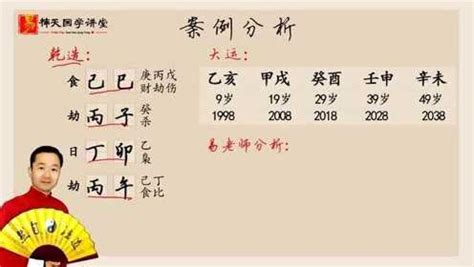 易
择天国学讲堂
案例分析
乾造：
大运：
食 己 巳 庚丙戊
财劫伤
劫 丙 子 癸
杀
日 丁 卯 乙
枭
劫 丙 午 己丁
食比
乙亥 甲戌 癸酉 壬申 辛未
9岁 19岁 29岁 39岁 49岁
1998 2008 2018 2028 2038
易老师分析：